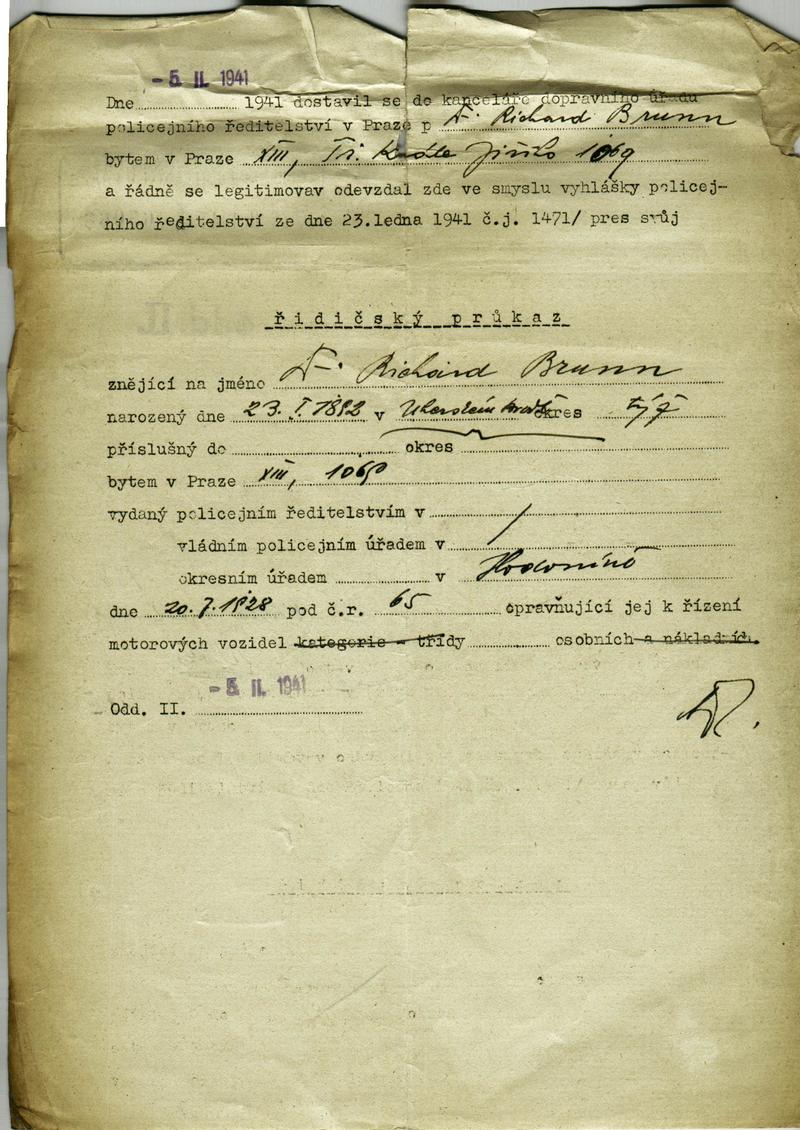 - 5. II. 1941
Dne 1941 dostavil se do kanceláře dopravního úřadu
policejního ředitelství v Praze p Dr. Richard Brunn
bytem v Praze XIII, Tř. 1069
a řádně se legitimovav odevzdal zde ve smyslu vyhlášky policej-
ního ředitelství ze dne 23.ledna 1941 č.j. 1471/ pres svůj
řidičský průkaz
znějící na jméno Dr. Richard Brunn
narozený dne 23. I. 1892 v okres týž
příslušný do okres
bytem v Praze XIII, 1069
vydaný policejním ředitelstvím v /
vládním policejním úřadem v
okresním úřadem v Hodoníně
dne 20.7.1928 pod č.r. 65 opravňující jej k řízení
motorových vozidel kategorie - třídy osobních a nákladních.
- 5. II. 1941
Odd. II.